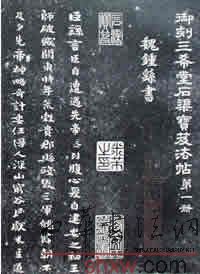 御刻三希堂石渠寶笈法帖第一冊
魏鍾繇書
臣繇言臣自遭遇先帝忝列腹心爰自建安之初王
師破賊關東時年荒穀貴郡縣殘毀三軍餽饟朝不
及夕先帝神略奇計委任得人深山窮谷民獻米豆道
snxw.com